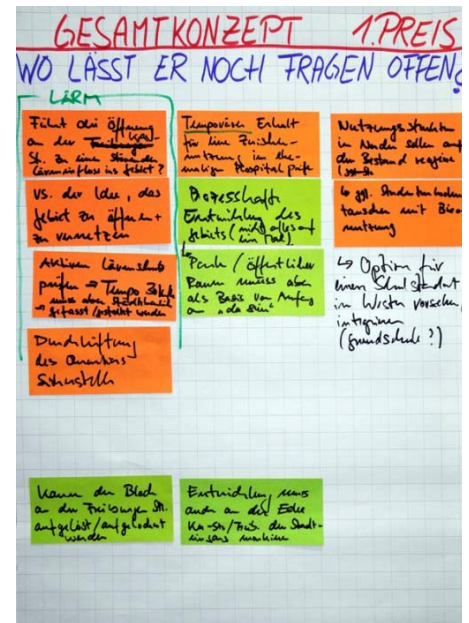 GESAMTKONZEPT 1. PREIS
WO LÄSST ER NOCH FRAGEN OFFEN?
LÄRM
Führt die Öffnung
an der
Str. zu einer
Lärmeinfluss ins Gebiet?
vs. der Idee, das
Gebiet zu öffnen +
zu vernetzen
Aktiven Lärmschutz
prüfen → Tempo 30
→ muss aber städtebaulich
gefasst/gestaltet werden
Durchlüftung
des Quartiers
sicherstellen
Temporären Erhalt
für eine Zwischen-
nutzung im ehe-
maligen Hospital prüfen
Prozesshafte
Entwicklung des
Gebiets (nicht alles auf
ein Mal)
↳ Park / öffentlicher
Raum muss aber
als Basis von Anfang
an "da sein"
Nutzungsstruktur
im Norden sollen auf
den Bestand reagieren
↳ ggf.
tauschen mit Büro-
nutzung
↳ Option für
einen Schulstandort
im Westen vorsehen,
integrieren
(Grundschule?)
Kann der Block
an der Freiburger Str.
aufgelöst/aufgelockert
werden
Entwicklung muss
auch an der Ecke
KA-Str/Freib. den Stadt-
eingang markieren